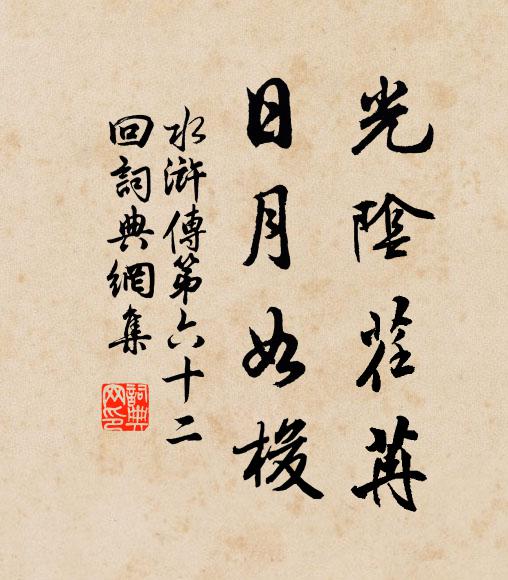 光陰荏苒
日月如梭
水滸傳第六十二
回詞典網集
詞典
网印